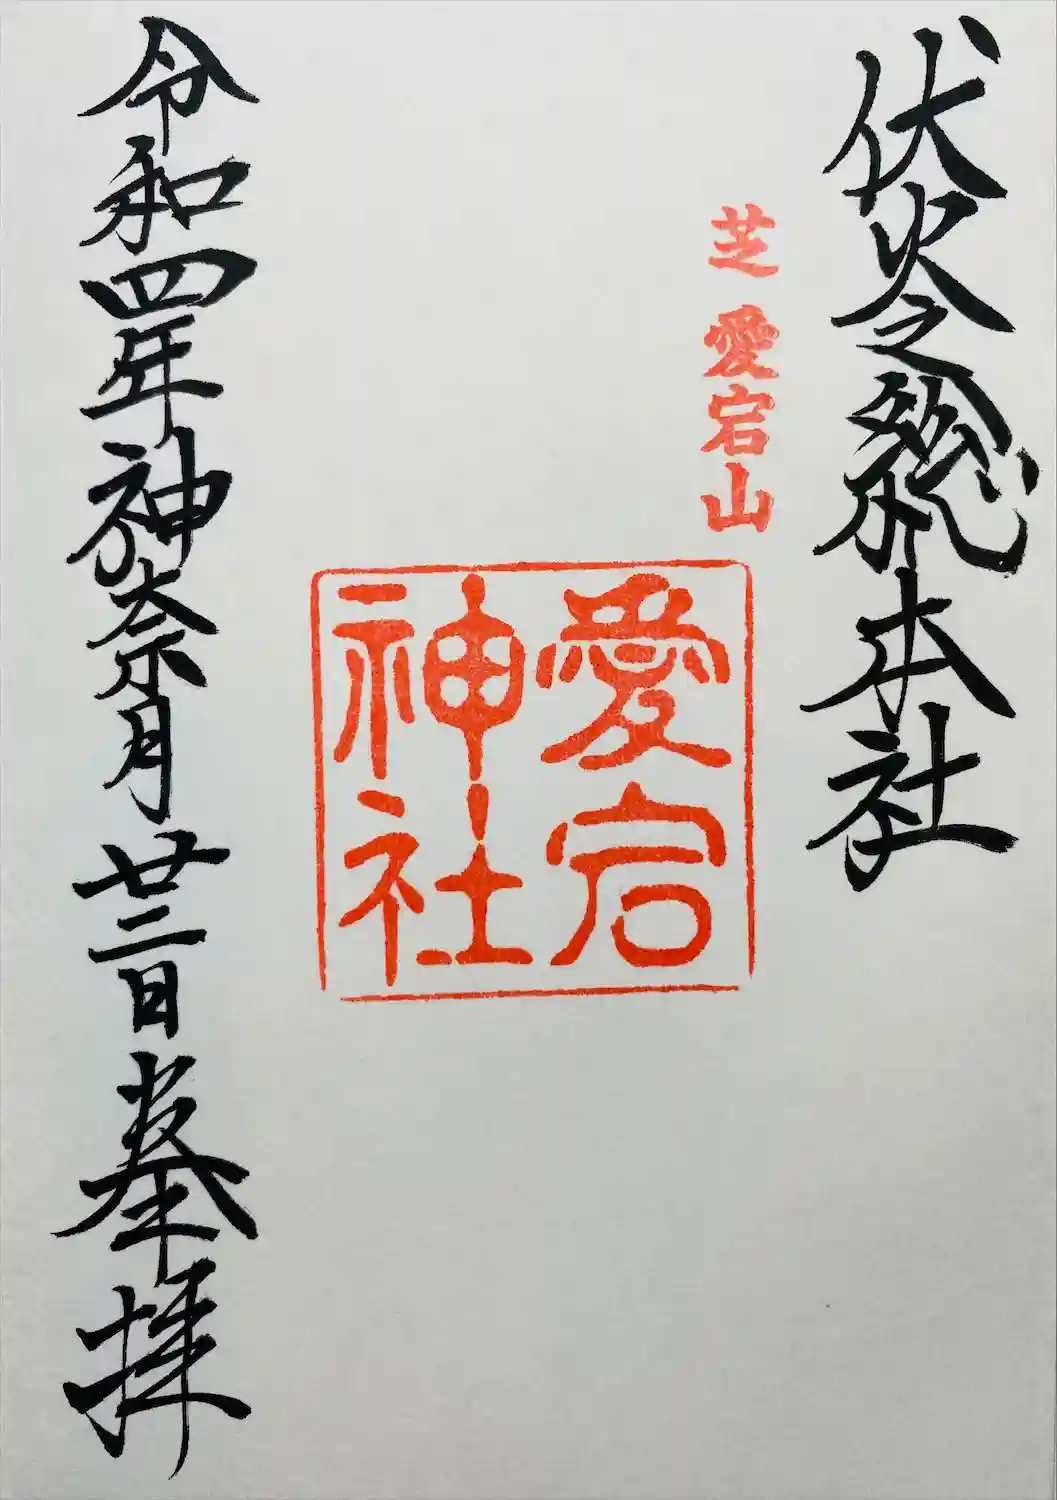 伏火之総本社
芝 愛宕山
愛宕
神社
令和四年神奈月廿二日登拝